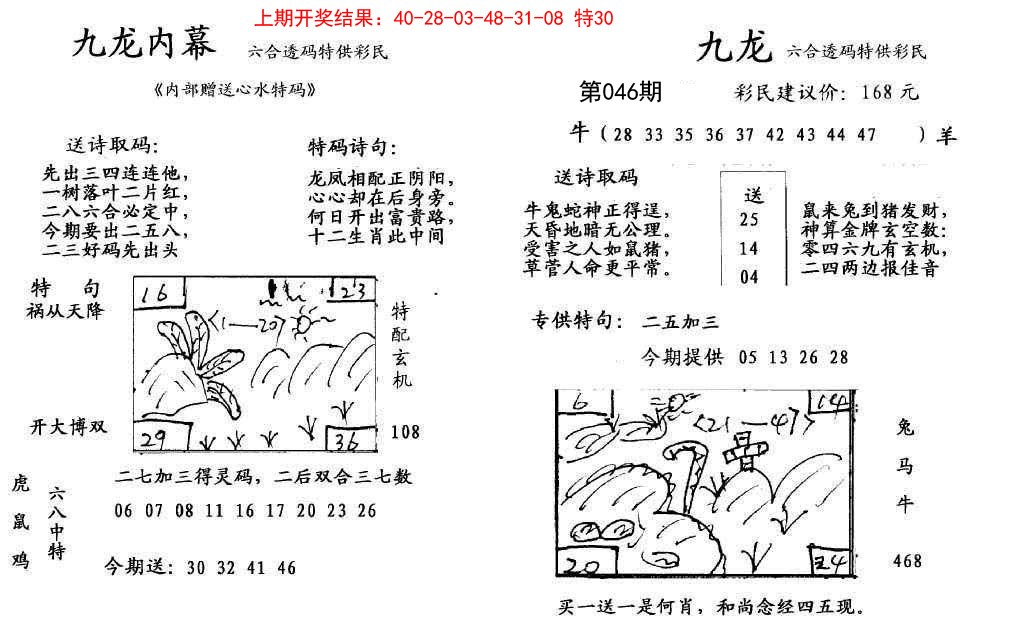 上期开奖结果：40-28-03-48-31-08 特30
九龙内幕 六合透码特供彩民
《内部赠送心水特码》
送诗取码：
先出三四连连他，
一树落叶二片红，
二八六合必定中，
今期要出二五八，
二三好码先出头
特码诗句：
龙凤相配正阴阳，
心心却在后身旁。
何日开出富贵路，
十二生肖此中间
特 句
祸从天降
开大博双
16
23
<1—20>
29
36
特配玄机
108
二七加三得灵码，二后双合三七数
虎鼠鸡
六八中特
06 07 08 11 16 17 20 23 26
今期送：30 32 41 46
九龙 六合透码特供彩民
第046期 彩民建议价：168元
牛（28 33 35 36 37 42 43 44 47 ）羊
送诗取码
牛鬼蛇神正得逞，
天昏地暗无公理。
受害之人如鼠猪，
草菅人命更平常。
送
25
14
04
鼠来兔到猪发财，
神算金牌玄空数：
零四六九有玄机，
二四两边报佳音
专供特句： 二五加三
今期提供 05 13 26 28
6
14
<21—47>
20
24
兔
马
牛
468
买一送一是何肖，和尚念经四五现。